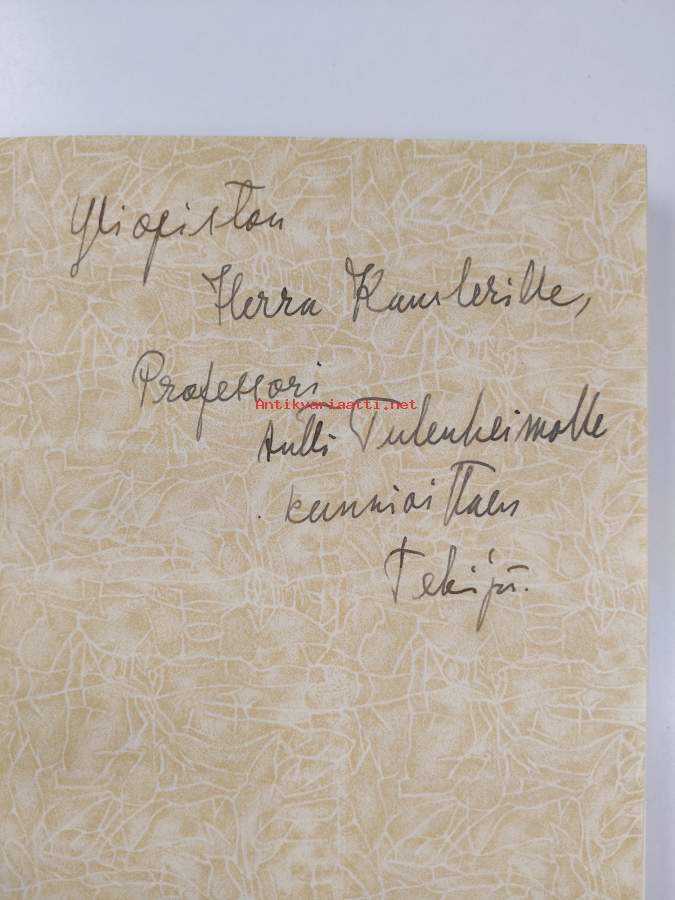 Yliopiston
Herra Kanslerille,
Professori
Antikvariaatti.net
Antti Tulenheimolle
kunnioittaen
Tekijä.